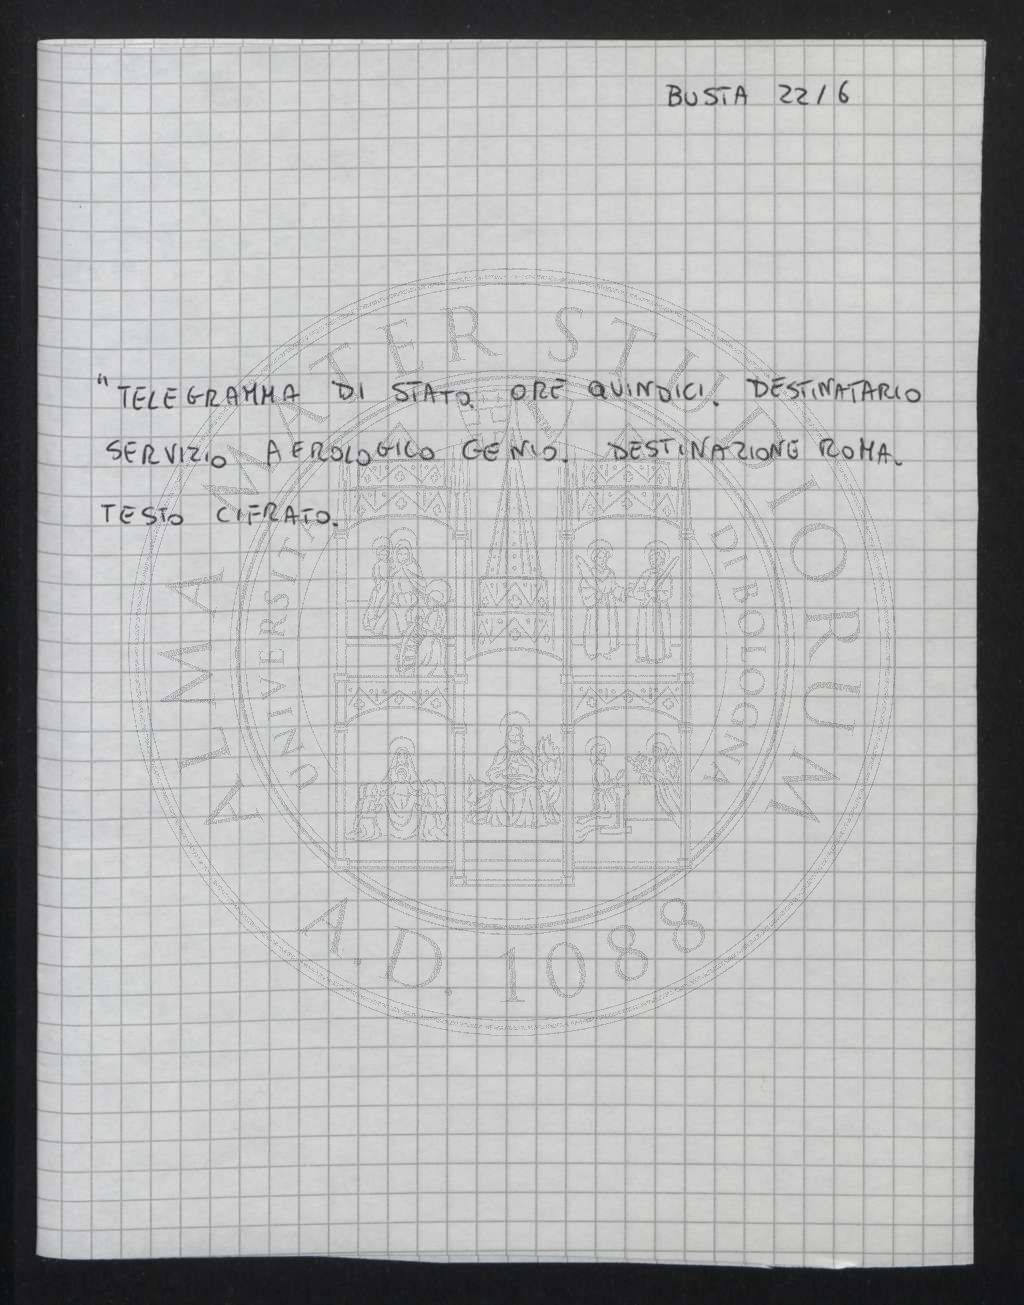 BUSTA 22/6
"TELEGRAMMA DI STATO. ORE QUINDICI. DESTINATARIO
SERVIZIO AEROLOGICO GENIO. DESTINAZIONE ROMA.
TESTO CIFRATO.
ALMA MATER STUDIORUM
UNIVERSITÀ DI BOLOGNA
A.D. 1088